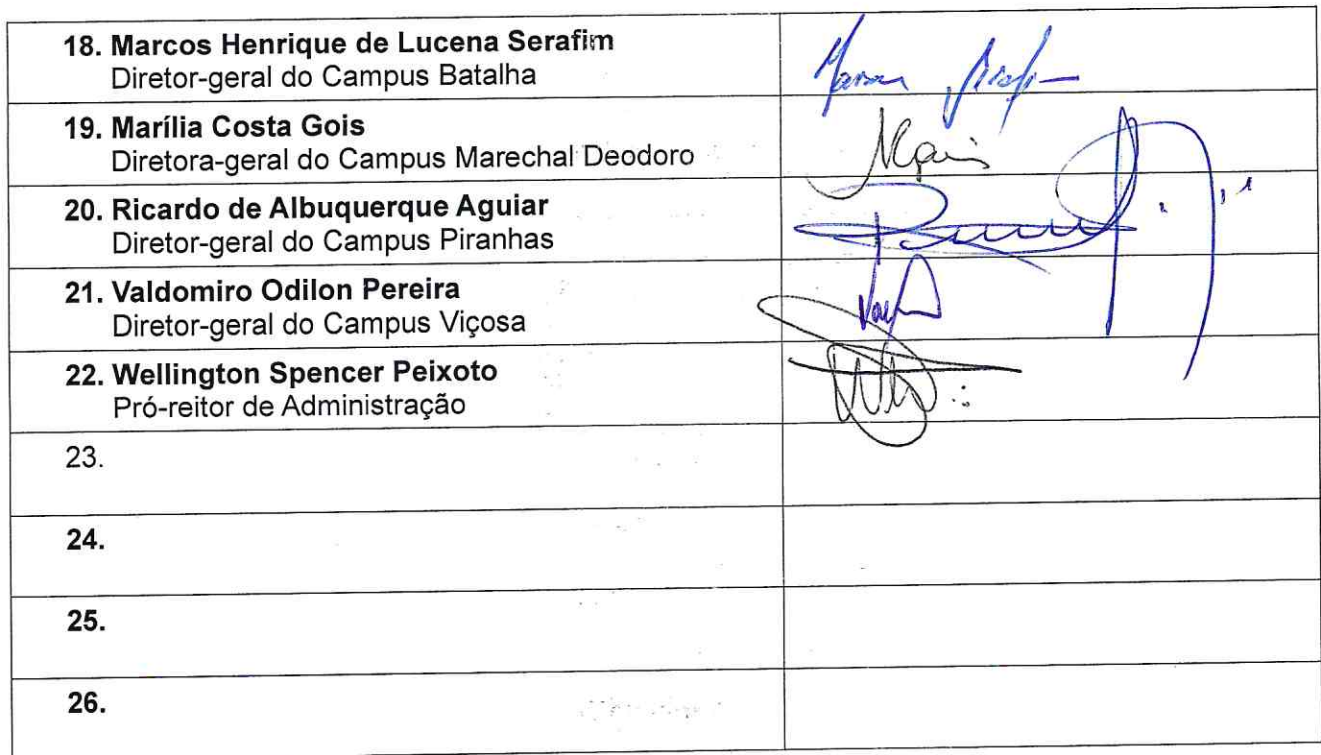 18. Marcos Henrique de Lucena Serafim
Diretor-geral do Campus Batalha
19. Marília Costa Gois
Diretora-geral do Campus Marechal Deodoro
20. Ricardo de Albuquerque Aguiar
Diretor-geral do Campus Piranhas
21. Valdomiro Odilon Pereira
Diretor-geral do Campus Viçosa
22. Wellington Spencer Peixoto
Pró-reitor de Administração
23.
24.
25.
26.